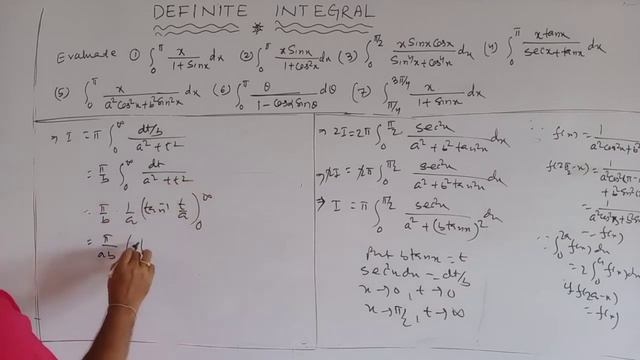 DEFINITE INTEGRAL
Evaluate ① ∫₀^π x/(1+Sinx) dx (2) ∫₀^π xSinx/(1+cos²x) dx (3) ∫₀^(π/2) xSinxcosx/(Sin⁴x+cos⁴x) dx (4) ∫₀^π xtanx/(secx+tanx) dx
(5) ∫₀^π x/(a²cos²x+b²sin²x) dx (6) ∫₀^π θ/(1-cosαsinθ) dθ (7) ∫_(π/4)^(3π/4) x/(1+sinx) dx
⇒ I = π ∫₀^∞ (dt/b)/(a²+t²)
= π/b ∫₀^∞ dt/(a²+t²)
= π/b 1/a (tan⁻¹ t/a)₀^∞
= π/ab (
⇒ 2I = 2π ∫₀^(π/2) sec²x/(a²+b²tan²x) dx
⇒ 2I = 2π ∫₀^(π/2) sec²x/(a²+b²tan²x) dx
⇒ I = π ∫₀^(π/2) sec²x/(a²+(btanx)²) dx
put btanx = t
sec²x dx = dt/b
x→0, t→0
x→π/2, t→∞
∵ f(x) = 1/(a²cos²x+b²
= f(x)
∫₀^(2a) f(x) dx
= 2∫₀^a f(x) dx
if f(2a-x)
= f(x)